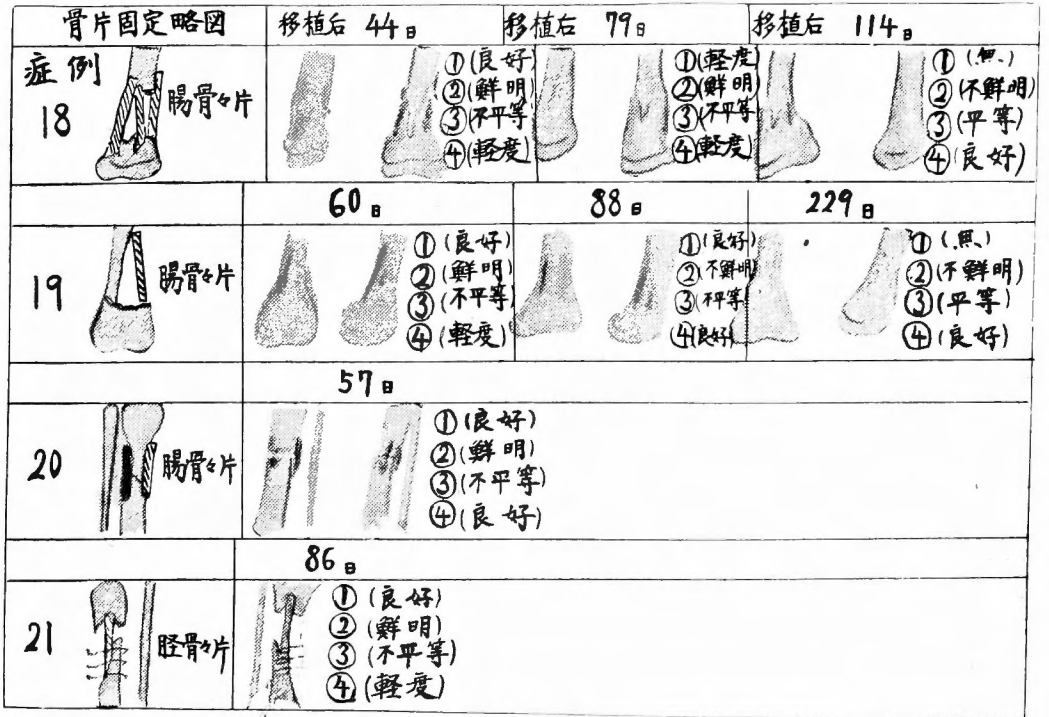 骨片固定略図 移植后 44日 移植后 79日 移植后 114日
症例 18
腸骨々片
①(良好)
②(鮮明)
③(不平等)
④(軽度)
①(軽度)
②(鮮明)
③(不平等)
④(軽度)
①(無)
②(不鮮明)
③(平等)
④(良好)
60日 88日 229日
19
腸骨々片
①(良好)
②(鮮明)
③(不平等)
④(軽度)
①(良好)
②(不鮮明)
③(不平等)
④(良好)
①(無)
②(不鮮明)
③(平等)
④(良好)
57日
20
腸骨々片
①(良好)
②(鮮明)
③(不平等)
④(良好)
86日
21
胫骨々片
①(良好)
②(鮮明)
③(不平等)
④(軽度)